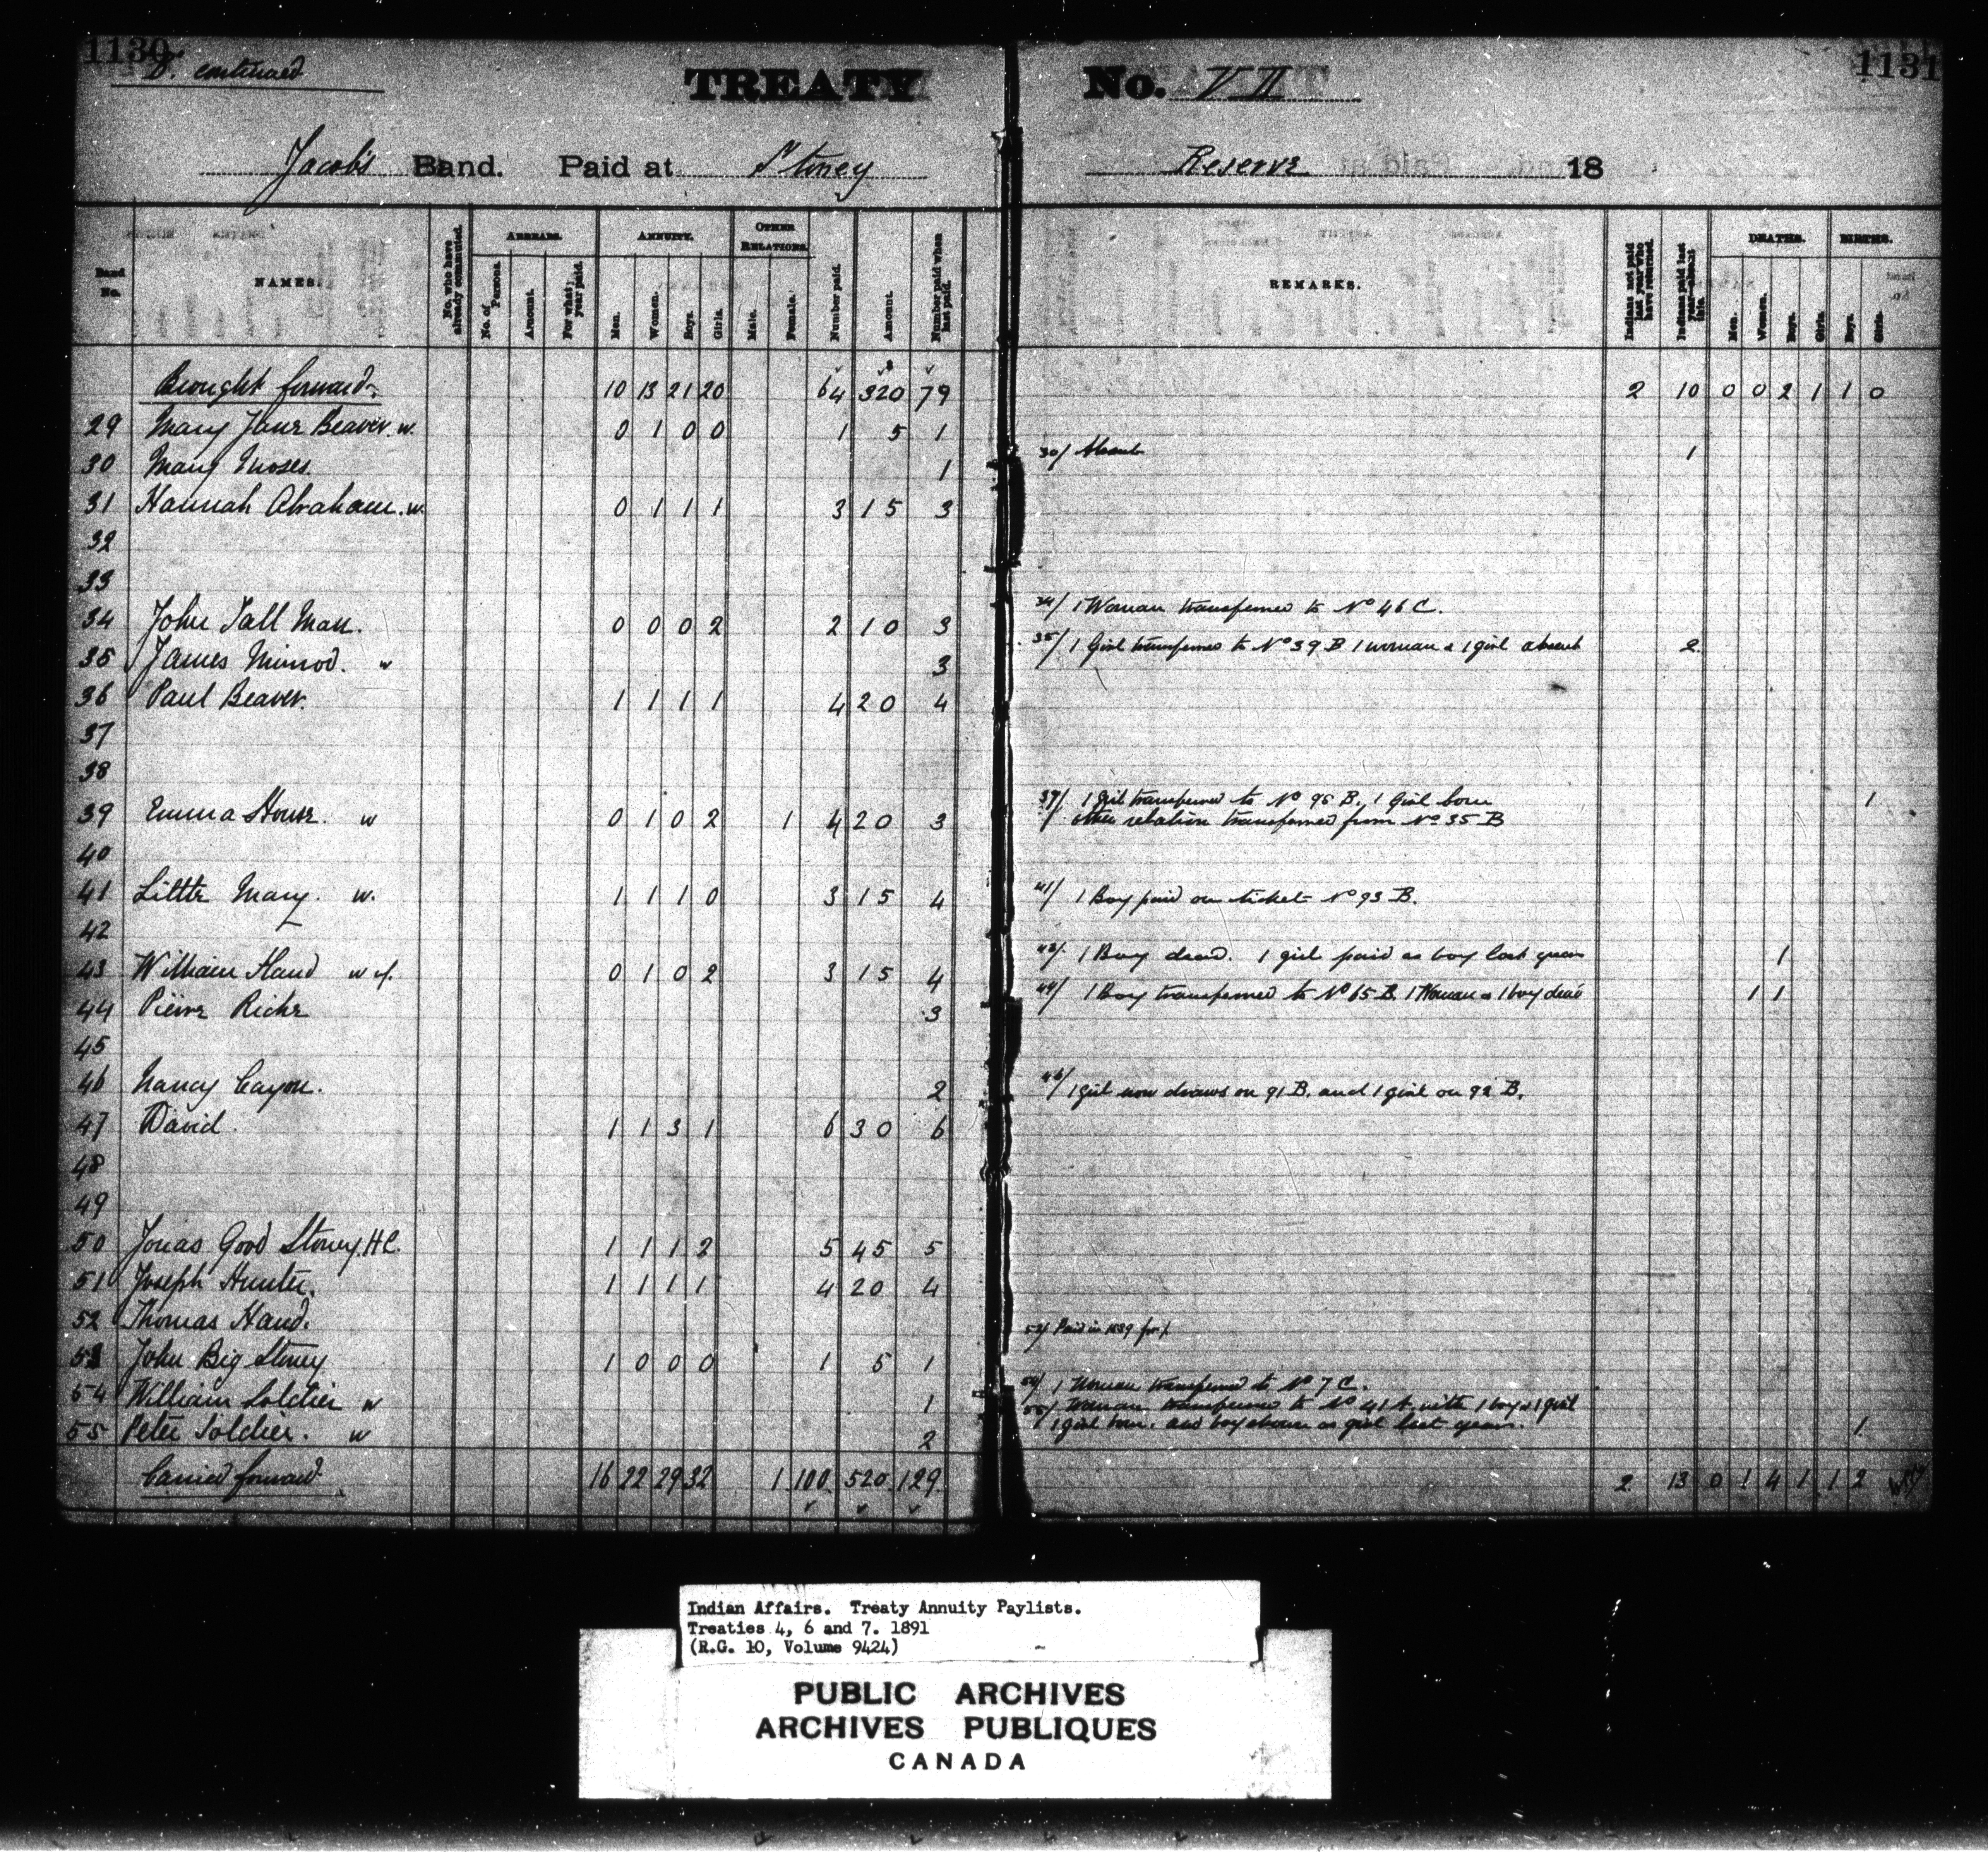 1130
B. continued
TREATY No. VII
1131
Jacob's Band. Paid at Stoney Reserve 18
Band No.
NAMES.
No. who have already commuted.
ARREARS.
No. of Persons.
Amount.
For what year paid.
ANNUITY.
Men.
Women.
Boys.
Girls.
OTHER RELATIONS.
Male.
Female.
Number paid.
Amount.
Number paid when last paid.
REMARKS.
Indians not paid last year who have returned.
Indians paid last year—absent this.
DEATHS.
Men.
Women.
Boys.
Girls.
BIRTHS.
Boys.
Girls.
Brought forward 10 13 21 20 64 320 79 2 10 0 0 2 1 1 0
29 Mary Jane Beaver. w. 0 1 0 0 1 5 1
30 Mary Moses. 1 30/ Absent 1
31 Hannah Abraham. w. 0 1 1 1 3 15 3
32
33
34 John Tall Man. 0 0 0 2 2 10 3 34/ 1 Woman transferred to No 46 C.
35 James Nimrod. w 3 35/ 1 Girl transferred to No 39 B 1 woman & 1 girl absent 2
36 Paul Beaver. 1 1 1 1 4 20 4
37
38
39 Emma House. w 0 1 0 2 1 4 20 3 39/ 1 girl transferred to No 95 B, 1 Girl born 1
other relation transferred from No 35 B
40
41 Little Mary. w. 1 1 1 0 3 15 4 41/ 1 Boy paid on ticket No 93 B.
42
43 William Hand w 0 1 0 2 3 15 4 43/ 1 Boy dead. 1 girl paid as boy last year 1
44 Pierre Riche 3 44/ 1 Boy transferred to No 65 B. 1 Woman & 1 boy dead 1 1
45
46 Nancy Cayou. 2 46/ 1 girl now draws on 91 B. and 1 girl on 92 B.
47 David. 1 1 3 1 6 30 6
48
49
50 Jonas Good Stoney. HC. 1 1 1 2 5 45 5
51 Joseph Hunter. 1 1 1 1 4 20 4
52 Thomas Hand. 52/ Paid in 1889 for
53 John Big Stoney 1 0 0 0 1 5 1
54 William Soldier w 1 54/ 1 Woman transferred to No 7 C.
55 Peter Soldier. w 2 55/ Woman transferred to No 41 A. with 1 boy & 1 girl
1 girl born. and boy shown as girl last year. 1
Carried forward 16 22 29 32 1 100 520 129 2 13 0 1 4 1 1 2
Indian Affairs. Treaty Annuity Paylists.
Treaties 4, 6 and 7. 1891
(R.G. 10, Volume 9424)
PUBLIC ARCHIVES
ARCHIVES PUBLIQUES
CANADA